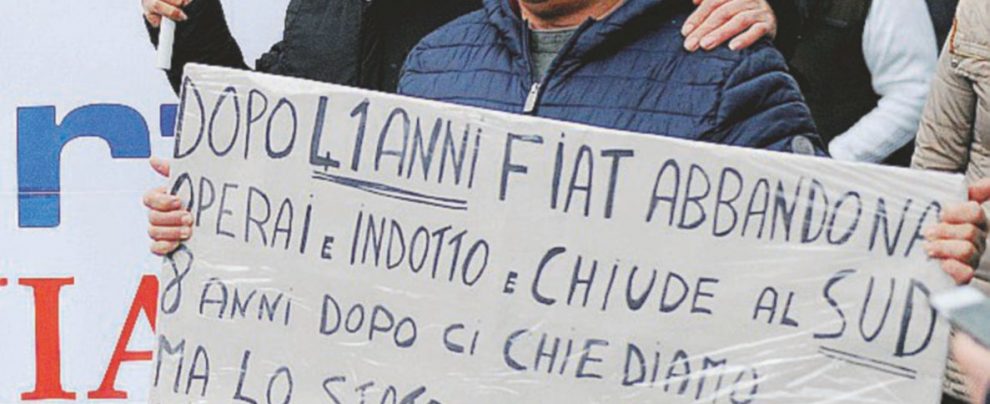 DOPO 41 ANNI FIAT ABBANDONA
OPERAI E INDOTTO E CHIUDE AL SUD
8 ANNI DOPO CI CHIEDIAMO
MA LO